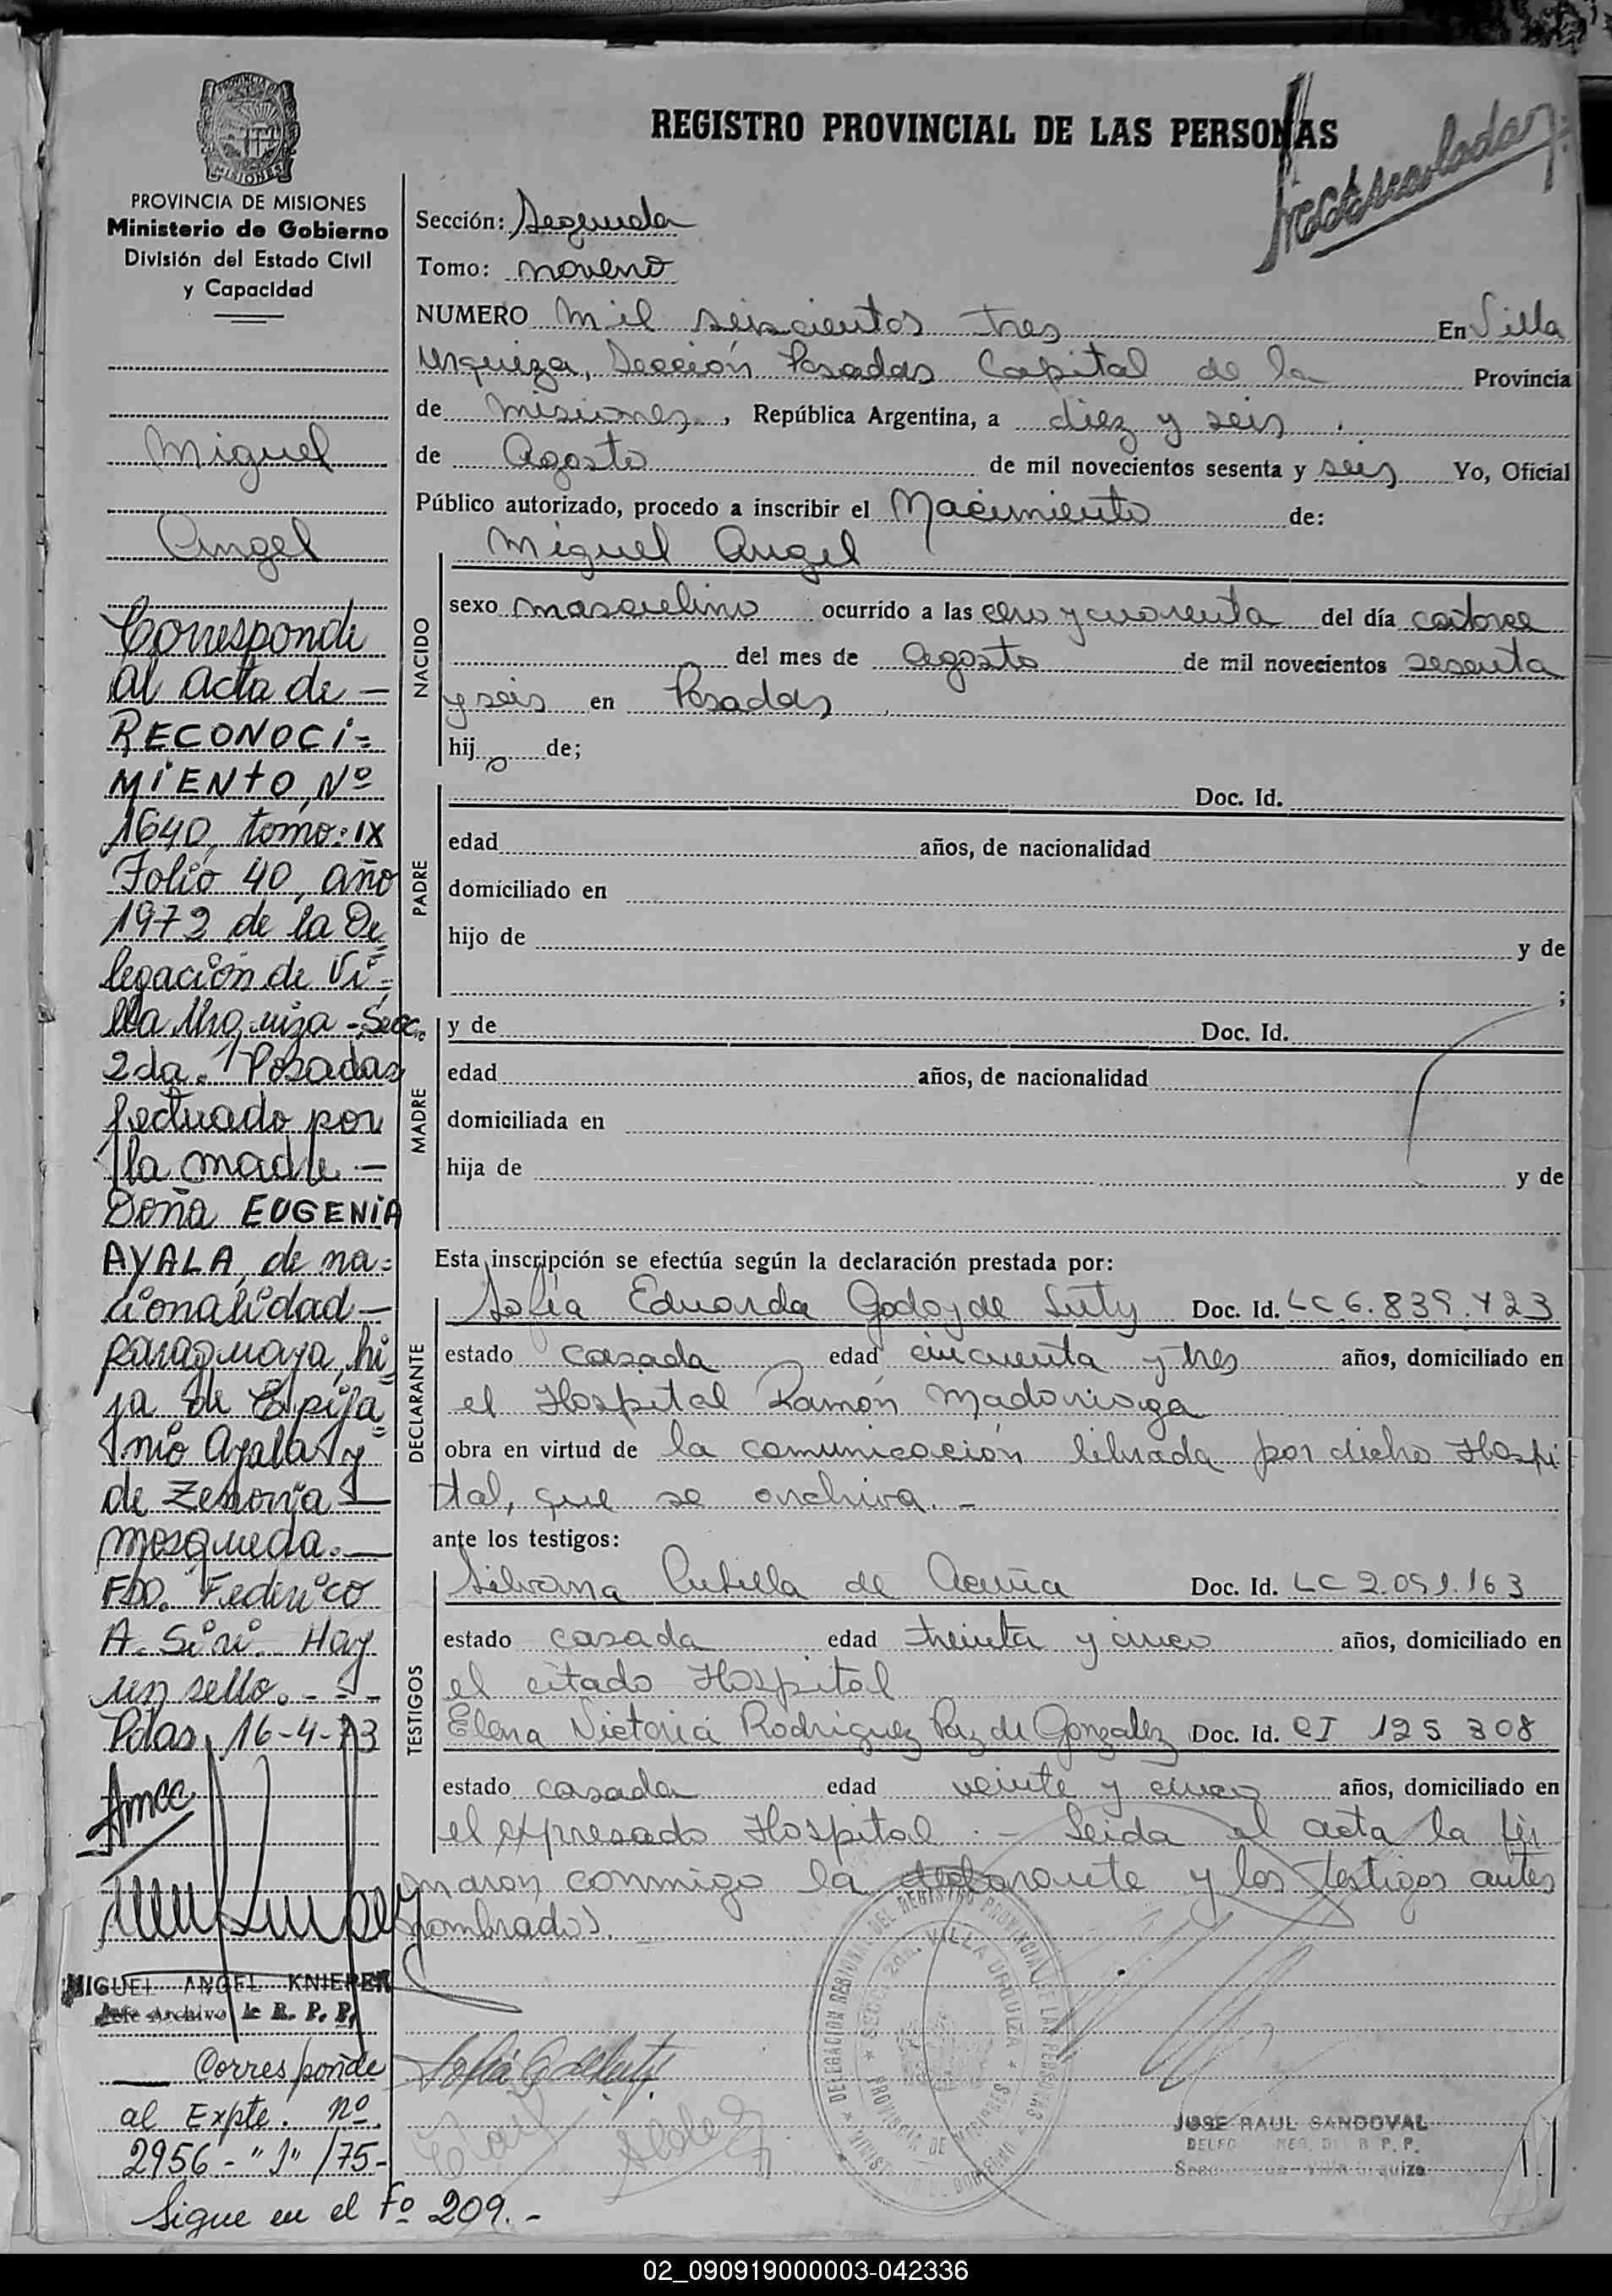 REGISTRO PROVINCIAL DE LAS PERSONAS
PROVINCIA DE MISIONES
Ministerio de Gobierno
División del Estado Civil
y Capacidad
Miguel
Angel
Corresponde
al acta de —
RECONOCI=
MIENTO, Nº
1640, tomo: IX
Folio 40, año
1972 de la De
legación de Vi=
lla Urquiza - Secc.
2da. Posadas
fectuado por
la madre —
Doña EUGENIA
AYALA, de na=
cionalidad —
paraguaya, hi
ja de Epifa
nio Ayala y
de Zenona —
Mosqueda. —
FDO. Federico
A. Siri. Hay
un sello. - - -
Pdas, 16-4-73
MIGUEL ANGEL KNIEPER
Jefe Archivo R. P. P.
Corresponde
al Expte. nº
2956 - "J" /75-
Sigue en el Fº 209. -
Sección: Segunda
Tomo: noveno
NUMERO mil seiscientos tres En Villa
Urquiza, Sección Posadas Capital de la Provincia
de Misiones, República Argentina, a diez y seis
de Agosto de mil novecientos sesenta y seis Yo, Oficial
Público autorizado, procedo a inscribir el Nacimiento de:
Miguel Angel
NACIDO
sexo masculino ocurrido a las cero y cuarenta del día catorce
del mes de Agosto de mil novecientos sesenta
y seis en Posadas
hijo de;
PADRE
Doc. Id.
edad años, de nacionalidad
domiciliado en
hijo de y de
;
MADRE
y de Doc. Id.
edad años, de nacionalidad
domiciliada en
hija de y de
Esta inscripción se efectúa según la declaración prestada por:
DECLARANTE
Sofía Eduarda Godoy de Doc. Id. LC 6.839.423
estado casada edad cincuenta y tres años, domiciliado en
el Hospital Ramón Madariaga
obra en virtud de la comunicación librada por dicho Hospi
tal, que se archiva. -
ante los testigos:
TESTIGOS
Silvana de Acuña Doc. Id. LC 2.051.163
estado casada edad treinta y cinco años, domiciliado en
el citado Hospital
Elena Victoria Rodriguez Paz de Gonzalez Doc. Id. CI 125 308
estado casada edad veinte y cinco años, domiciliado en
el expresado Hospital. - Leida el acta la fir
maron conmigo la declarante y los testigos antes
nombrados.
DELEGACION REGIONAL DEL REGISTRO PROVINCIAL DE LAS PERSONAS
SECC. 2da. VILLA URQUIZA
PROVINCIA DE MISIONES
MINISTERIO DE GOBIERNO
JOSE RAUL SANDOVAL
02_090919000003-042336